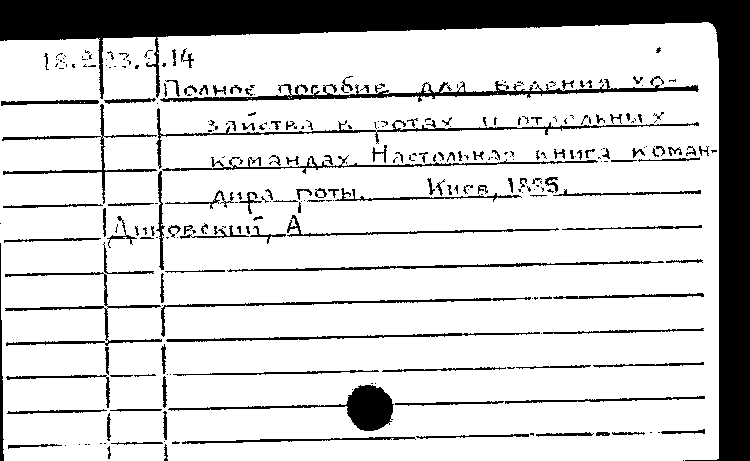 18.2.23.5.14
Полное пособие для ведения хо-
зяйства в ротах и отдельных
командах. Настольная книга коман-
дира роты. Киев, 1885.
Диковский, А